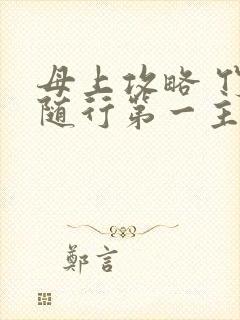 母上攻略
随行第一主
鄭言